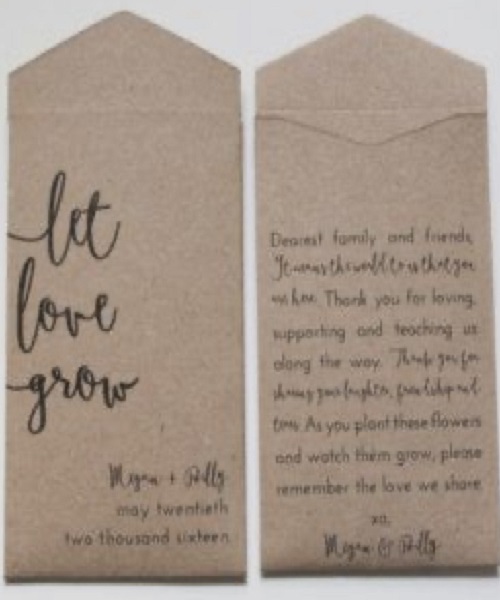 let
love
grow
Megan + Billy
may twentieth
two thousand sixteen
Dearest family and friends,
It means the world to us that you
are here. Thank you for loving,
supporting and teaching us
along the way. Thank you for
sharing your laughter, friendship and
time. As you plant these flowers
and watch them grow, please
remember the love we share.
xo,
Megan & Billy